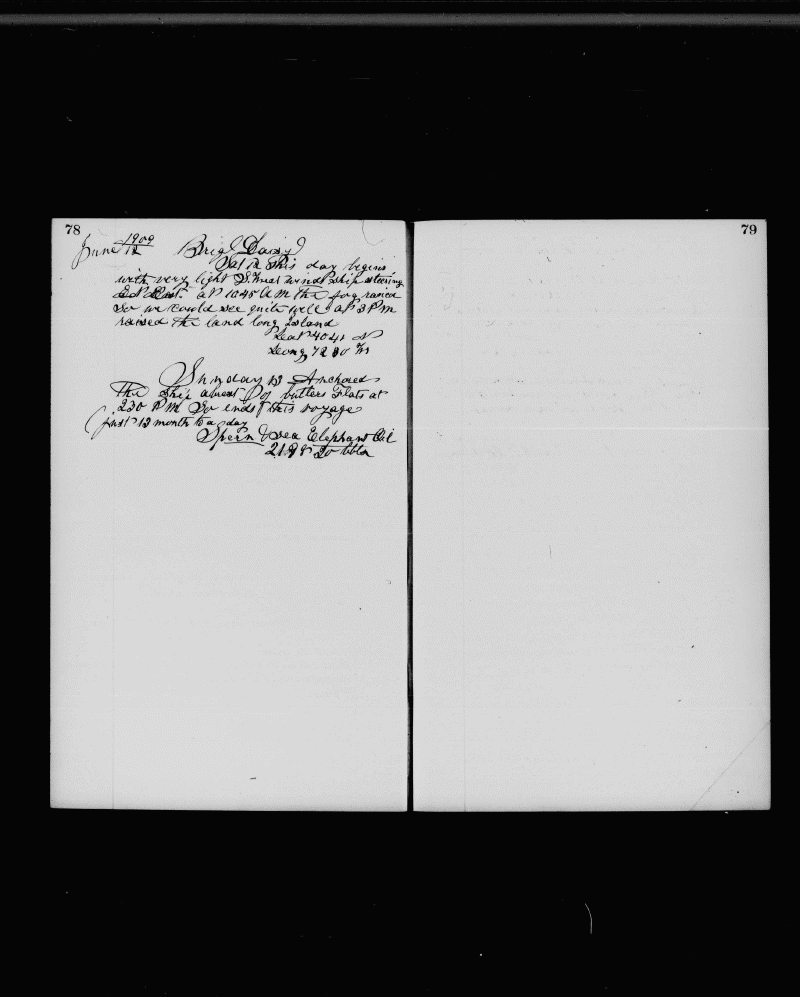 78
79
June 1909 12 Brig Daisy
Sat 12 This day begins
with very light S. West wind ship steering
East. at 1045 A M the fog raised
So we could see quite well at 3 P M
raised the land long Island
Leat 40 41 N
Leong 72 30 Ws
Sunday 13 Anchored
the ship abrest of butlers Flats at
230 P M So ends this voyage
just 13 month to a day
Sperm & Sea Elephant Oil
bbls